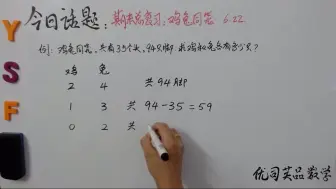 今日话题：期末总复习：鸡兔同笼 6.22.
例：鸡兔同笼，共有35个头，94只脚，求鸡和兔各有多少只？
鸡 兔
2 4 共94只脚
1 3 共 94-35=59
0 2 共
Y
S
F
优司芙品数学